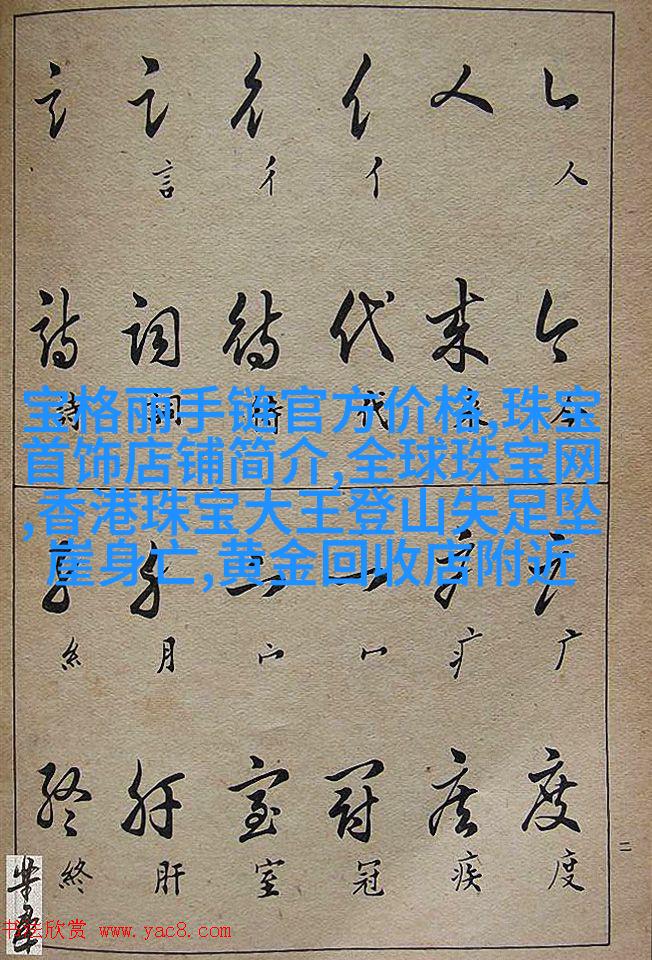 人 人 亻 彳 言 言
人 亻 彳 言
今 來 代 待 詞 詩
宝格丽手链官方价格,珠宝
首饰店铺简介,全球珠宝网
,香港珠宝大王登山失足坠
崖身亡,黄金回收店附近
广 疒 冖 宀 月 糹
广 疒 冖 宀 月 糹
度 疾 冠 室 肝 終
度 疾 冠 室 肝 終
二
书法欣赏 www.yac8.com